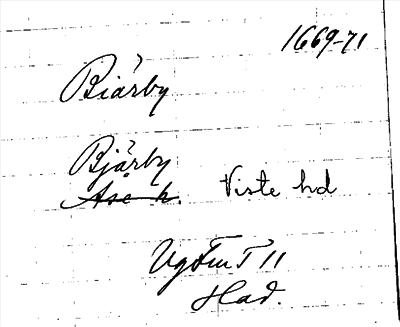 1669-71
Biärby
Bjärby
Åse h. Viste hd
VgFmT 11
Had.